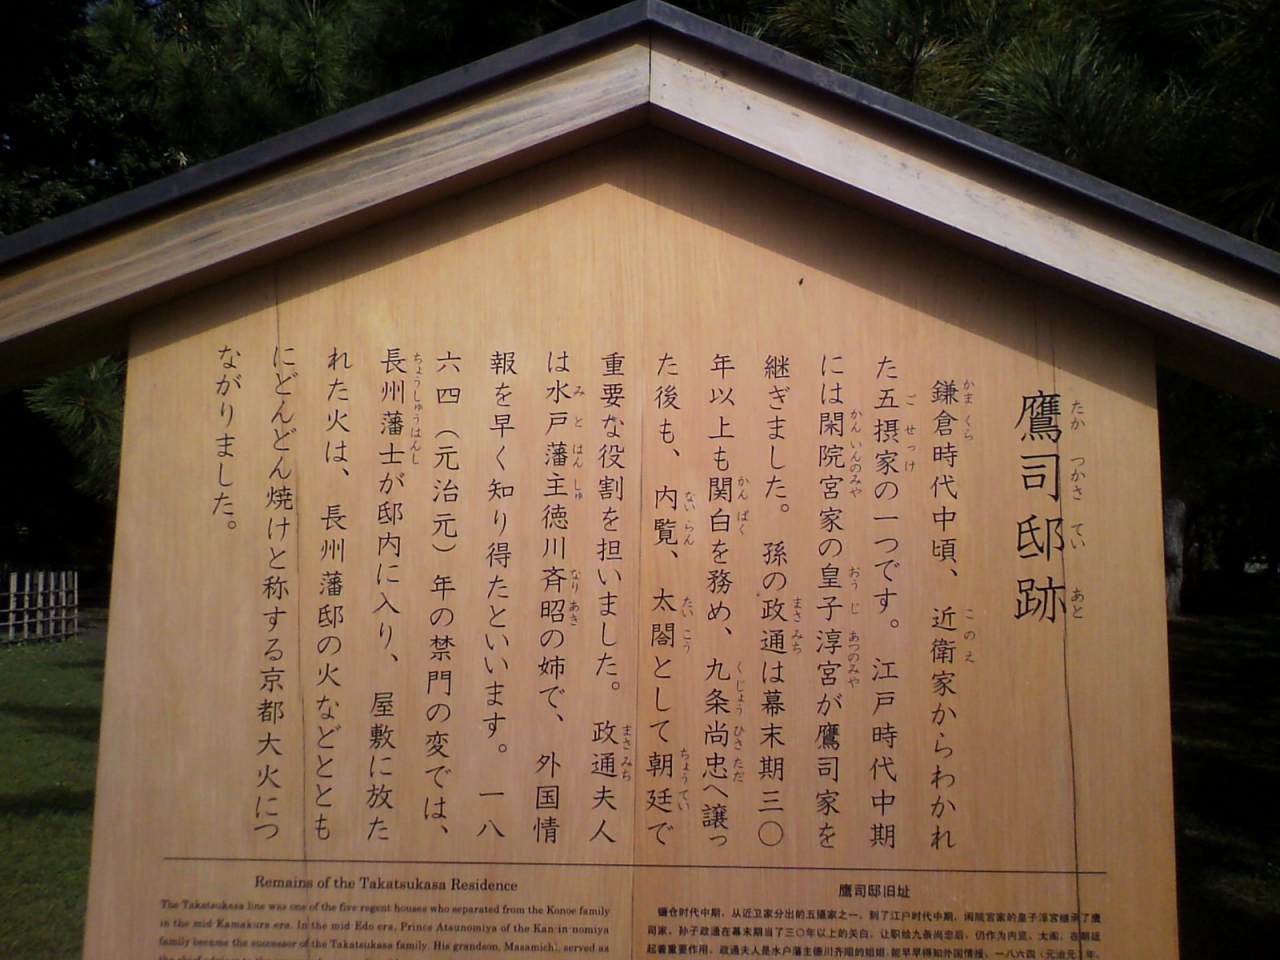 鷹司邸跡
鎌倉時代中頃、近衛家からわかれ
た五摂家の一つです。江戸時代中期
には閑院宮家の皇子淳宮が鷹司家を
継ぎました。孫の政通は幕末期三〇
年以上も関白を務め、九条尚忠へ譲っ
た後も、内覧、太閤として朝廷で
重要な役割を担いました。政通夫人
は水戸藩主徳川斉昭の姉で、外国情
報を早く知り得たといいます。一八
六四（元治元）年の禁門の変では、
長州藩士が邸内に入り、屋敷に放た
れた火は、長州藩邸の火などととも
にどんどん焼けと称する京都大火につ
ながりました。
Remains of the Takatsukasa Residence
The Takatsukasa line was one of the five regent houses who separated from the Konoe family
in the mid-Kamakura era. In the mid-Edo era, Prince Atsunomiya of the Kan-in-nomiya
family became the successor of the Takatsukasa family. His grandson, Masamichi, served as
鹰司邸旧址
镰仓时代中期，从近卫家分出的五摄家之一，到了江户时代中期，闲院宫家的皇子淳宫继承了鹰
司家，孙子政通在幕末期当了三〇年以上的关白，让职给九条尚忠后，仍作为内览、太阁，在朝廷
起着重要作用，政通夫人是水户藩主德川齐昭的姐姐，能早早得知外国情报。一八六四（元治元）年，